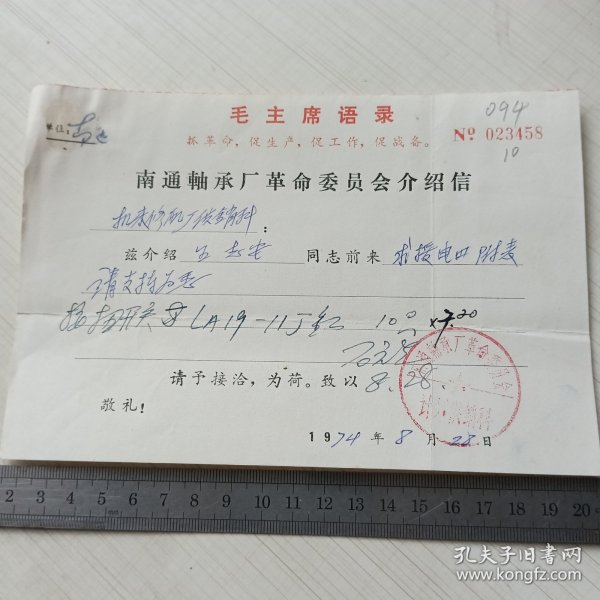 毛主席语录
094
抓革命，促生产，促工作，促战备。
№ 023458
10
单位：
南通軸承厂革命委员会介绍信
机床修配厂供销科：
兹介绍 同志前来 求援电口附表
请支持为盼
LA19-11J 红 10只 ×7.20
请予接洽，为荷。致以 8.28
敬礼！
轴承厂革命委员会
供销科
1974年8月28日
2 3 4 5 6 7 8 9 10 11 12 13 14 15 16 17 18 19 20
孔夫子旧书网
www.kongfz.com